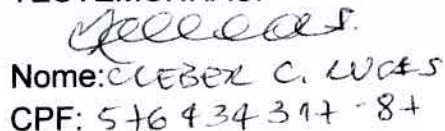 Nome: CLEBER C. LUCAS
CPF: 576 434 317-87